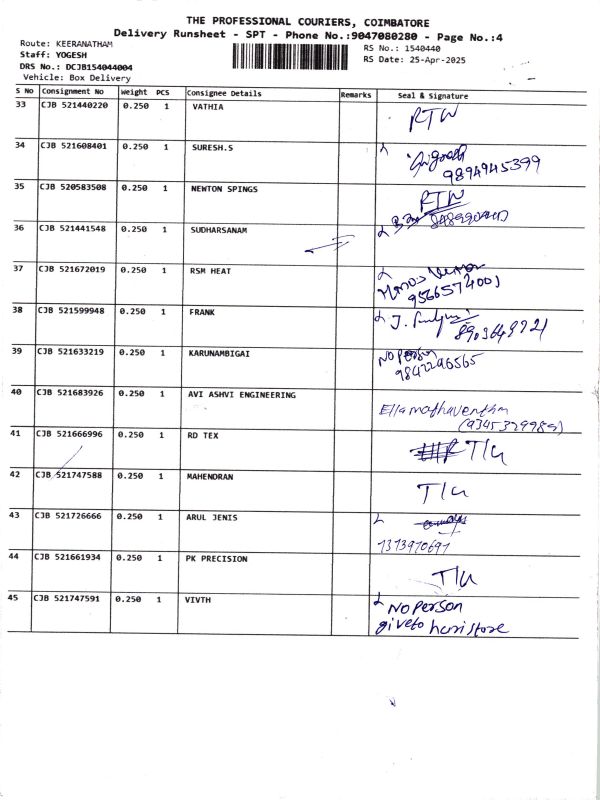 THE PROFESSIONAL COURIERS, COIMBATORE
Delivery Runsheet - SPT - Phone No.:9047080280 - Page No.:4
Route: KEERANATHAM
Staff: YOGESH
DRS No.: DCJB154044004
Vehicle: Box Delivery
RS No.: 1540440
RS Date: 25-Apr-2025
S No Consignment No Weight PCS Consignee Details Remarks Seal & Signature
33 CJB 521440220 0.250 1 VATHIA RTW
34 CJB 521608401 0.250 1 SURESH.S
9894945399
35 CJB 520583508 0.250 1 NEWTON SPINGS RTW
36 CJB 521441548 0.250 1 SUDHARSANAM
37 CJB 521672019 0.250 1 RSM HEAT
9566574001
38 CJB 521599948 0.250 1 FRANK J.
8903649721
39 CJB 521633219 0.250 1 KARUNAMBIGAI No person
9842296565
40 CJB 521683926 0.250 1 AVI ASHVI ENGINEERING
Ellamathaventhan
(9345329989)
41 CJB 521666996 0.250 1 RD TEX T/L
42 CJB 521747588 0.250 1 MAHENDRAN T/L
43 CJB 521726666 0.250 1 ARUL JENIS
7373970697
44 CJB 521661934 0.250 1 PK PRECISION T/L
45 CJB 521747591 0.250 1 VIVTH No person
give to hari store